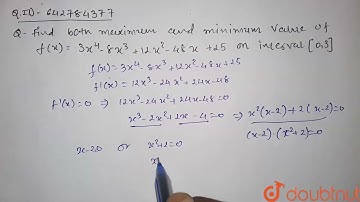 Q.ID- 642784377
Q- find both maximum and minimum value of
f(x) = 3x⁴-8x³+12x²-48x+25 on interval [0,3]
f(x) = 3x⁴-8x³+12x²-48x+25
f'(x) = 12x³-24x²+24x-48
f'(x)=0 ⇒ 12x³-24x²+24x-48=0
x³-2x²+2x-4=0 ⇒ x²(x-2)+2(x-2)=0
(x-2)(x²+2)=0
x-2=0 or x²+2=0
x
doubtnut